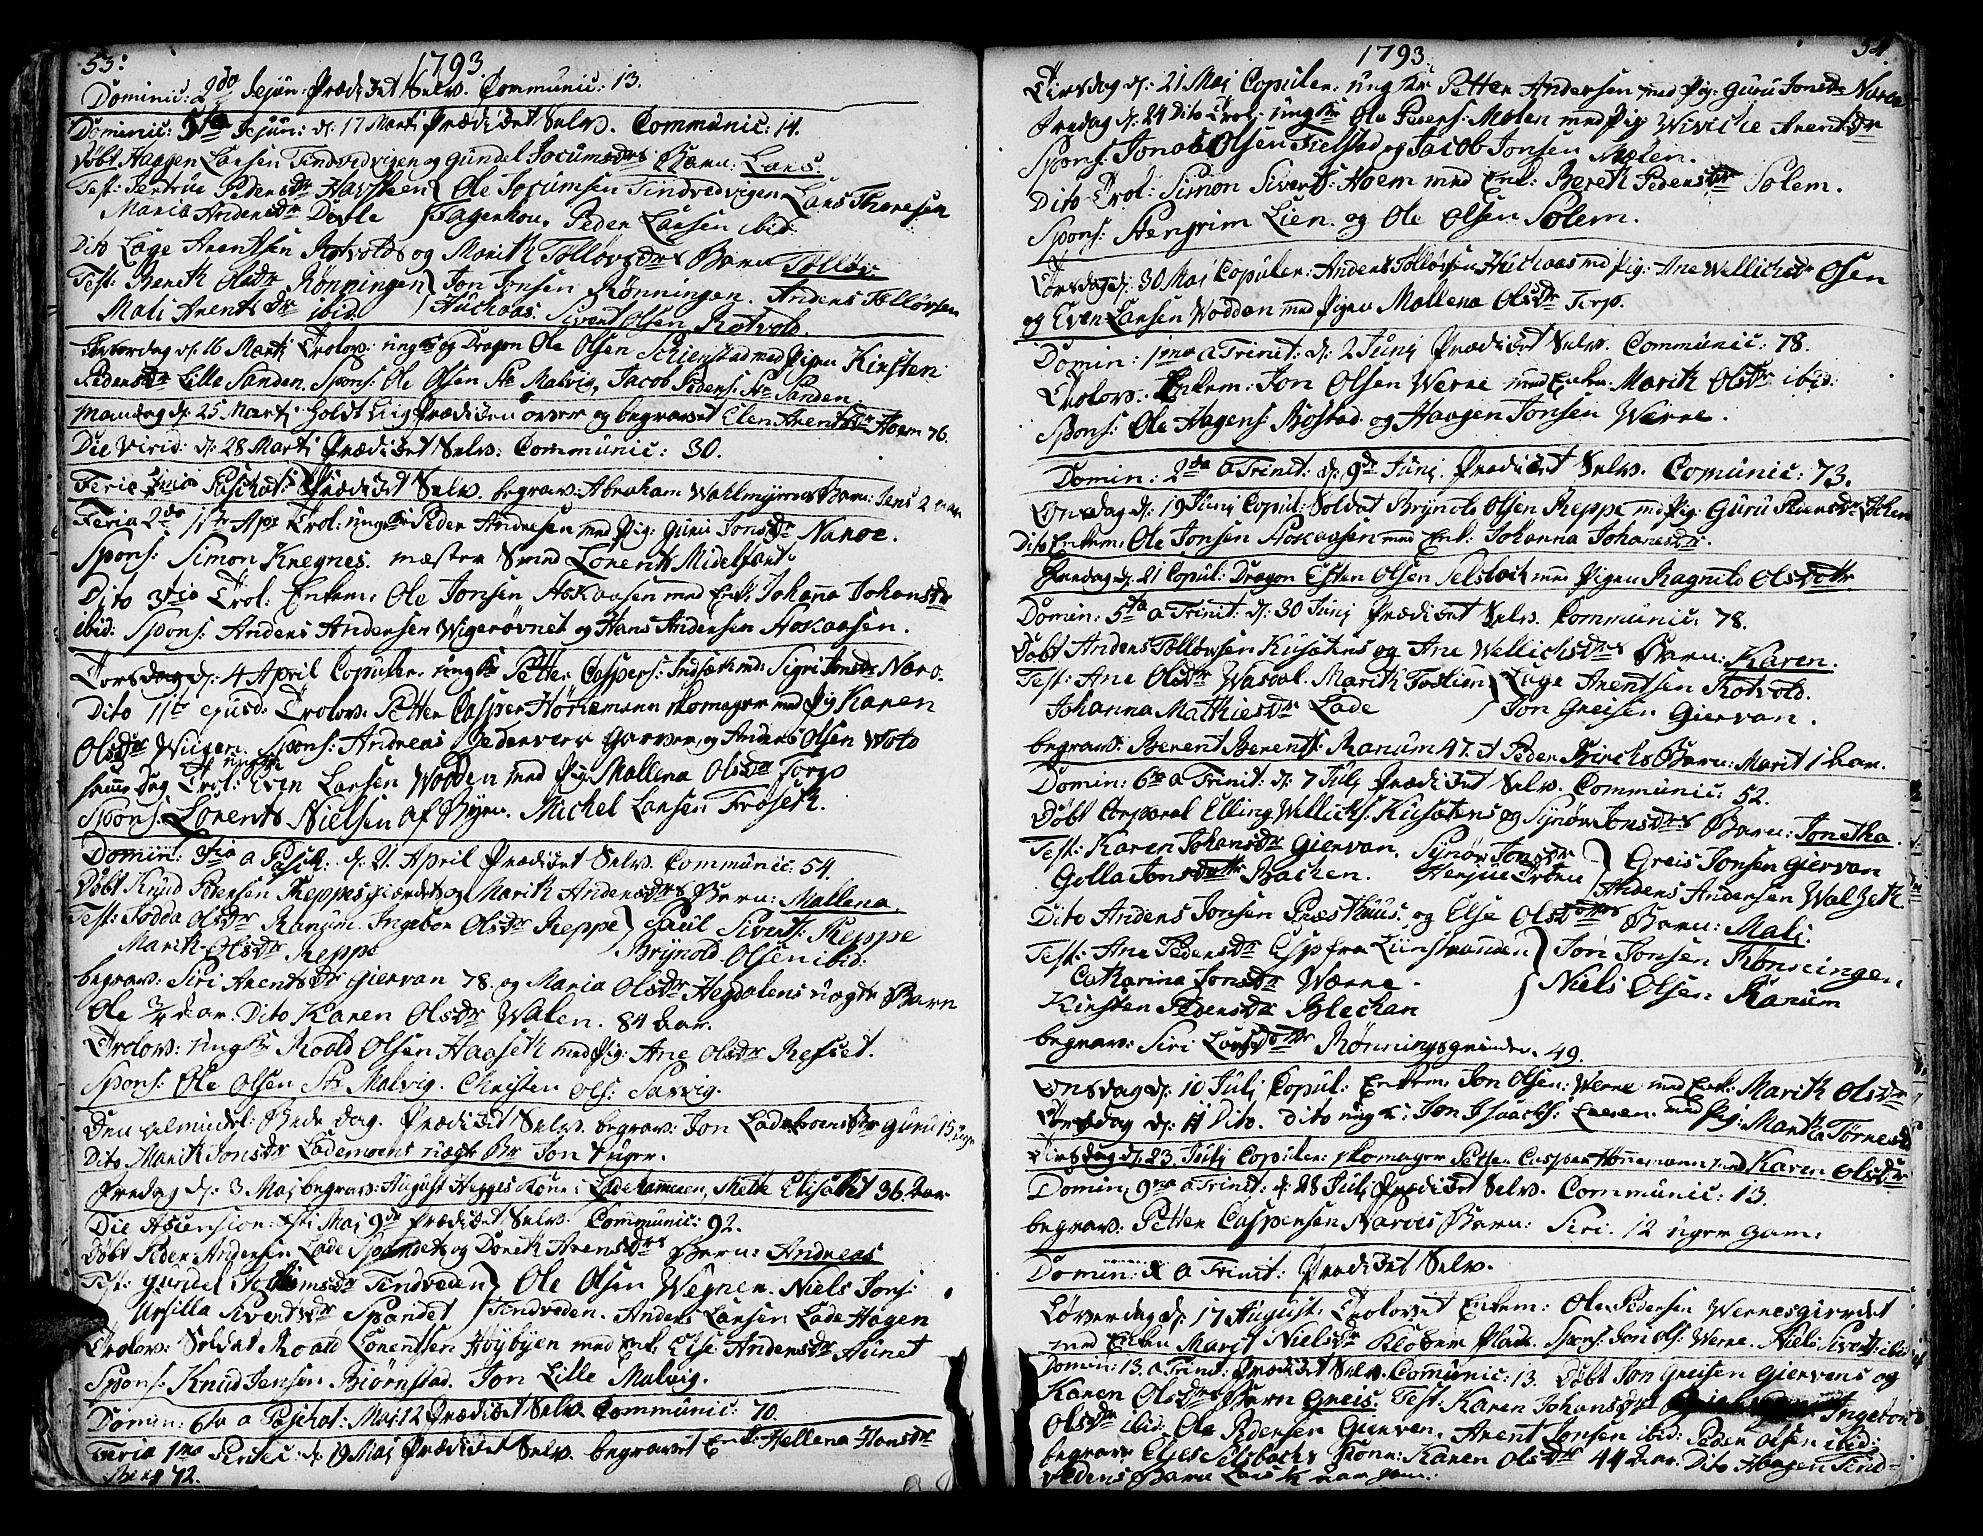 53:
1793
Dominic: 2do Jejun: Prædiket Selv. Communic: 13.
Dominic: 5ta Jejun: d: 17 Marti Prædiket Selv. Communic: 14.
Døbt Haagen Larsen Tindvedvigen og Gundel Jocumsdrs Barn: Lars.
Test: Jertrue Pedersdr Havsteen Ole Jocumsen Tindvedvigen Lars Thoresen
Maria Andersdr Devle Fagerhou. Peder Larsen ibid:
Dito Lage Arentsen Rotvolds og Marith Tølløvsdrs Barn Tølløv.
Test: Berith Olsdr Rønningen Jon Jonsen Rønningen. Anders Tølløvsen
Mali Arentsdr ibid. Huchaas. Sivert Olsen Rotvold.
d: 16 Marti Trolov: ungk og Dragon Ole Olsen Schienstad med Pigen Kirsten
Pedersdr Lille Sanden. Spons: Ole Olsen St. Malvig, Jacob Peders: St. Sanden
Mandag d: 25 Marti holdt Liig Prædiken over og begravet Elen Arentsdr Hoem 76.
Die Virid: d: 28 Marti Prædiket Selv. Communic: 30.
Feria 1ma Paschat: Prædiket Selv. begrav: Abraham Wahlmyrens Barn: Jens 2 aar
Feria 2da 1ste Apr Trol: ungk Peder Andresen med Pig: Guru Jonsdr Naroe.
Spons: Simon Kregnes. mester Svend Lorents Midelfart.
Dito 3tia Trol: Enkem: Ole Jonsen Askaasen med Enk: Johana Johansdr
ibid: Spons: Anders Andersen Wigerøvnet og Hans Andersen Askaasen.
Torsdag d: 4 April Copuler. ungk Petter Caspers: Indsæt md: Sigri Jonsdr Naro.
Dito 11te ejusd: Trolov: Petter Casper Hørnemann Skomager med Pig Karen
Olsdr Wugen. Spons: Andreas Garver, og Anders Olsen Wold
samme Dag Trol: ungk Even Larsen Wodden med Pig: Mallena Olsdr Torp
Spons: Lorents Nielsen af Byen. Michel Larsen Trøseth.
Domin: 3tia a Pasch. d: 21 April Prædiket Selv. Communic: 54.
Døbt Knud Pedersen Reppesgierdet og Marith Andersdrs Barn: Mallena.
Test: Todda Olsdr Ranum. Ingebor Olsdr Reppe Paul Sivert: Reppe
Marith Olsdr Reppe Brynold Olsen ibid:
begrav: Siri Arentsdr Giervan 78. og Maria Olsdr Hegdalens uægte Barn
Ole 3/4 aar. Dito Karen Olsdr Walen. 84 aar.
Trolov: ungk Roald Olsen Haaseth med Pig: Ane Olsdr Refset.
Spons: Ole Olsen St. Malvig. Christen Ols: Saxvig.
Den almindel: Bede dag. Prædiket Selv. begrav: Jon Lademoens Dr Guru 15
Dito Marith Jonsdr Lademoens uægte Br Jon uger.
Fredag d: 3 Maj begrav: August Hegges Kone: Ladehameren, Mette Elisabet 36 aar
Die Ascension: Xsti Maj 9de Prædiket Selv. Communic: 92.
Døbt Peder Andersen Lade Spandet og Dorith Arensdrs Barn: Andreas
Test: Guruel Tindveden Ole Olsen Wegner. Niels Jons:
Ursilla Sivertsdr Spandet Tindveden. Anders Larsen Lade Hagen
Trolov: Soldat Roald Lorentsen Høybyen med Enk: Else Andersdr Hunet
Spons: Knud Jensen Biørnstad. Jon Lille Malvig.
Domin: 6ta a Paschat: Maj 12 Prædiket Selv. Communic: 70.
Feria 1ma Pentec: d: 19 Maj Prædiket Selv. begravet Enk: Hellena Hansdr
Berg 72.
54.
1793
Tirsdag d: 21 Maj Copuler: ungkr: Petter Andersen med Pig: Guru Jonsdr Naroe
Fredag d: 24 Dito Trol: ungk Ole Peders: Molen med Pig Wiviche Arentsdr
Spons: Jonas Olsen Fielstad og Jacob Jonsen Malen.
Dito Trol: Simon Sivert: Hoem med Enk: Bereth Pedersdr Solem.
Spons: Hengrim Lien. og Ole Olsen Solem.
Torsdag d: 30 Maj Copuler: Anders Tølløvsen Huchaas md Pig: Ane Wellichsdr Osen
og Even Larsen Wodden med Pigen Mallena Olsdr Torp.
Domin: 1ma a Trinit: d: 2 Junj Prædiket Selv. Communic: 78.
Trolov: Enkem: Jon Olsen Werne med Enken Marith Olsdr ibid:
Spons: Ole Hagens: Bostad og Haagen Jonsen Werne.
Domin: 2da a Trinit: d: 9de Junj Prædiket Selv. Comunic: 73.
Onsdag d: 19 Junj Copul: Soldat Brynold Olsen Reppe md Pig: Guru Pedersdr Lohen
Dito Enkem: Ole Jonsen Askaasen med Enk: Johanna Johansdr.
Fredag d: 21 Copul: Dragon Esten Olsen Selsbach med Pigen Ragnild Olsdotr
Domin: 5ta a Trinit: d: 30 Junj Prædiket Selv. Communic: 78.
Døbt Anders Tølløvsen Kusætens og Ane Wellichsdrs Barn: Karen.
Test: Ane Olsdr Wasdal. Marith Tostien Lage Arentsen Rotvold.
Johanna Mathiesdr Lade Jon Greisen Giervan.
begrav: Berent Berents: Ranum 47. et Peder Kirchs Barn: Marit 1 aar.
Domin: 6ta a Trinit: d: 7 Julj Prædiket Selv. Communic: 52.
Døbt Corporal Elling Wellichs: Kusætens og Synøv Jonsdrs Barn: Jonetha.
Test: Karen Johansdr Giervan. Synøv Jonsdr Greis Jonsen Giervan
Golla Jonsdattr Bachen. Anders Andersen Walseth.
Dito Anders Jonsen Præsthuus. og Else Olsdotrs Barn: Mali.
Test: Ane Pedersdr Esp fra Liinstranden Jon Jonsen Rønningen
Catharina Jonsdr Wærne. Niels Olsen Ranum
Kirsten Pedersdr Blechan
begrav: Siri Larsdotr Rønningsgrinden. 49.
Onsdag d: 10 Julj Copul: Enkem: Jon Olsen: Werne med Enk: Marith Olsdr
Torsdag d: 11 Dito. Dito ungk: Jon Isaachs: med Pig: Martha Tørresdr
Tirsdag d: 23 Julj Copuler: Skomager Petter Casper Hønemann med Karen Olsdr
Domin: 9na a Trinit: d: 28 Julj Prædiket Selv. Communic: 13.
begrav: Petter Caspersen Naroes Barn: Siri. 12 uger gam:
Domin: X a Trinit: Prædiket Selv.
Løverdag d: 17 August: Trolovet Enkem: Ole Pedersen Wernesgierdet
med Enken Marit Nielsdr Kloster Plads. Spons: Jon Ols: Werne. Niels Sivert: ibid
Domin: 13. a Trinit: Prædiket Selv. Communic: 13. Døbt Jon Greisen Giervens og
Karen Olsdrs Barn Greis. Test: Karen Johansdr Ingebor
Olsdr ibid: Ole Pedersen Giervan. Arent Jonsen ibid: Peder Olsen ibid:
begrav: Elies Selsbachs Kone: Karen Olsdr 44 aar. Dito Haagen Tind-
vedens Barn Lars aar gam: